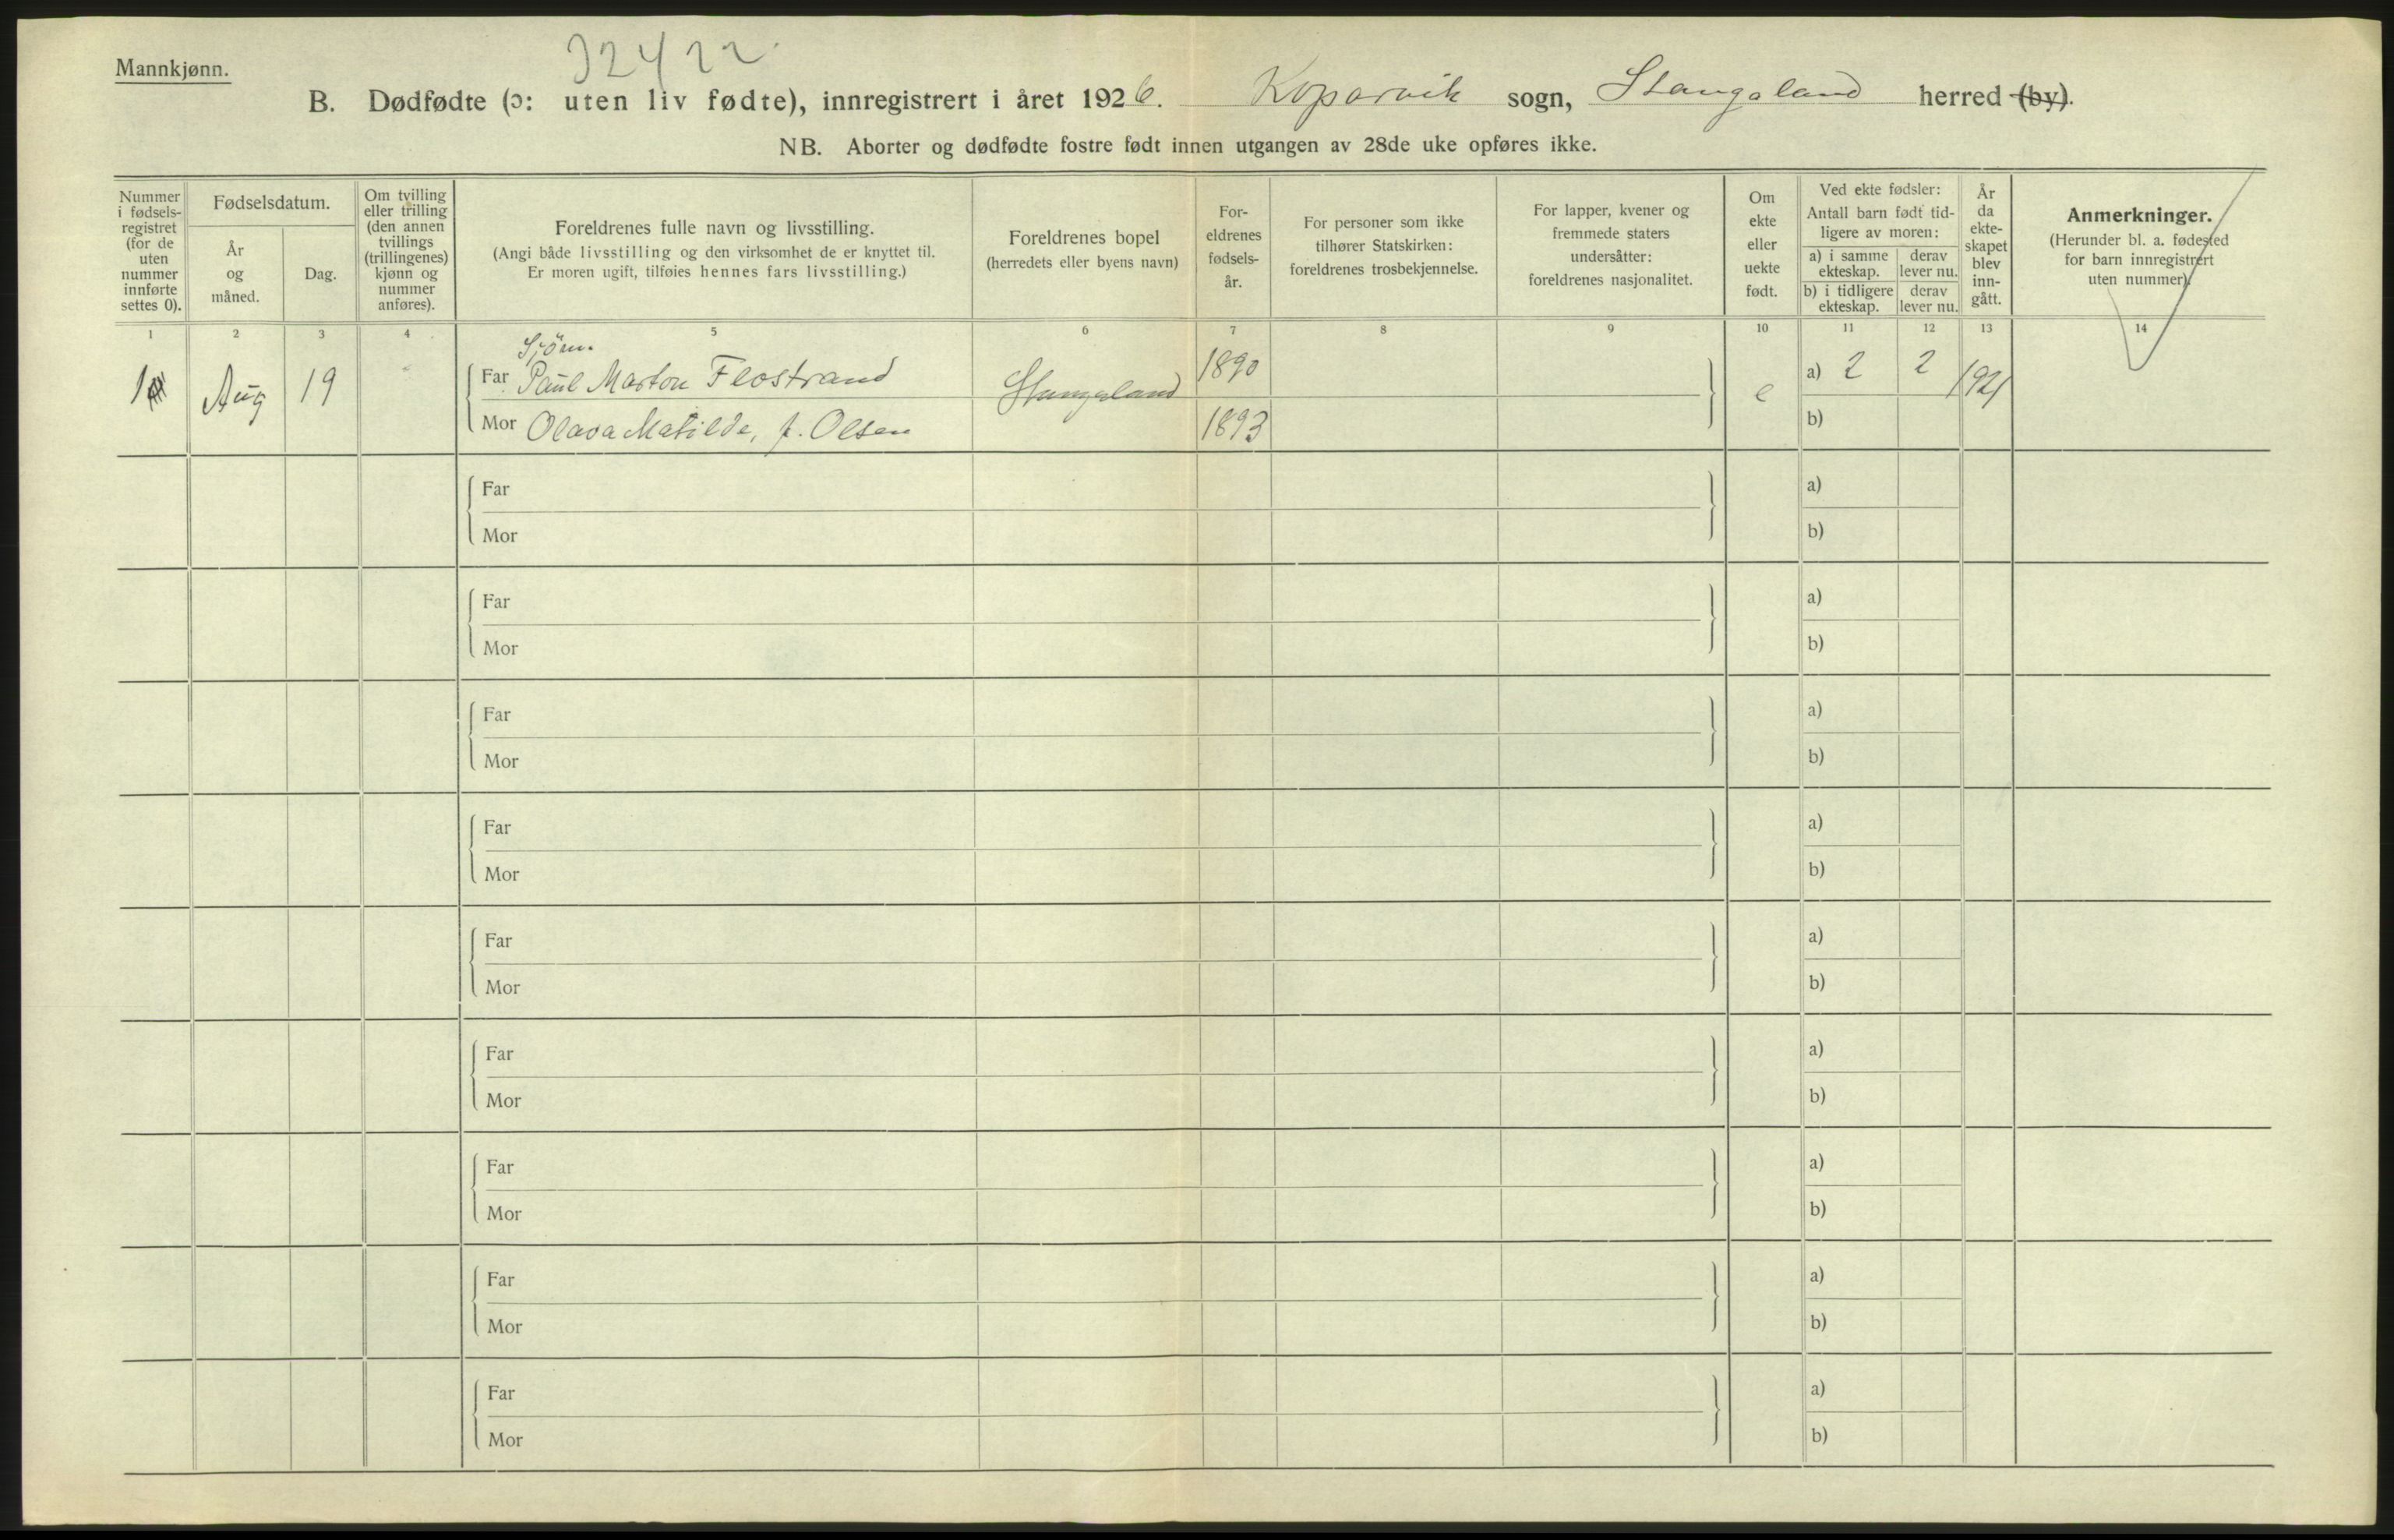 32422.
Mannkjønn.
B. Dødfødte (ɔ: uten liv fødte), innregistrert i året 1926. Kopervik sogn, Stangaland herred (by).
NB. Aborter og dødfødte fostre født innen utgangen av 28de uke opføres ikke.
Nummer
i fødsels-
registret
(for de
uten
nummer
innførte
settes 0).
Fødselsdatum.
År
og
måned.
Dag.
Om tvilling
eller trilling
(den annen
tvillings
(trillingenes)
kjønn og
nummer
anføres).
Foreldrenes fulle navn og livsstilling.
(Angi både livsstilling og den virksomhet de er knyttet til.
Er moren ugift, tilføies hennes fars livsstilling.)
Foreldrenes bopel
(herredets eller byens navn)
For-
eldrenes
fødsels-
år.
For personer som ikke
tilhører Statskirken:
foreldrenes trosbekjennelse.
For lapper, kvener og
fremmede staters
undersåtter:
foreldrenes nasjonalitet.
Om
ekte
eller
uekte
født.
Ved ekte fødsler:
Antall barn født tid-
ligere av moren:
a) i samme
ekteskap.
derav
lever nu.
b) i tidligere
ekteskap.
derav
lever nu.
År
da
ekte-
skapet
blev
inn-
gått.
Anmerkninger.
(Herunder bl. a. fødested
for barn innregistrert
uten nummer).
1 2 3 4 5 6 7 8 9 10 11 12 13 14
Sjöm.
1 Aug 19 Far Paul Marton Flostrand Stangaland 1890 e a) 2 2 1921
Mor Olava Matilde, f. Olsen 1893 b)
Far a)
Mor b)
Far a)
Mor b)
Far a)
Mor b)
Far a)
Mor b)
Far a)
Mor b)
Far a)
Mor b)
Far a)
Mor b)
Far a)
Mor b)
Far a)
Mor b)